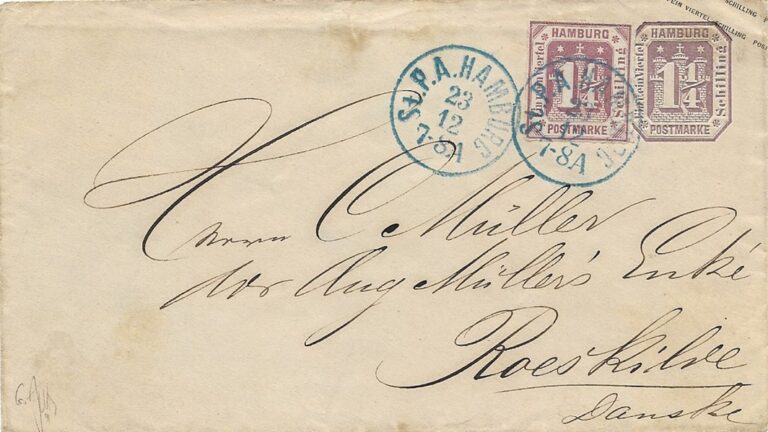 EIN VIERTEL SCHILLING POST
HAMBURG
Ein und ein Viertel
1¼
Schilling
POSTMARKE
HAMBURG
Ein und ein Viertel
1¼
Schilling
POSTMARKE
St.P.A. HAMBURG
23
12
7-8A
St.P.A. HAMBURG
12
7-8A
Herrn C Müller
Aug Müller's Enké
Roeskilde
Danske